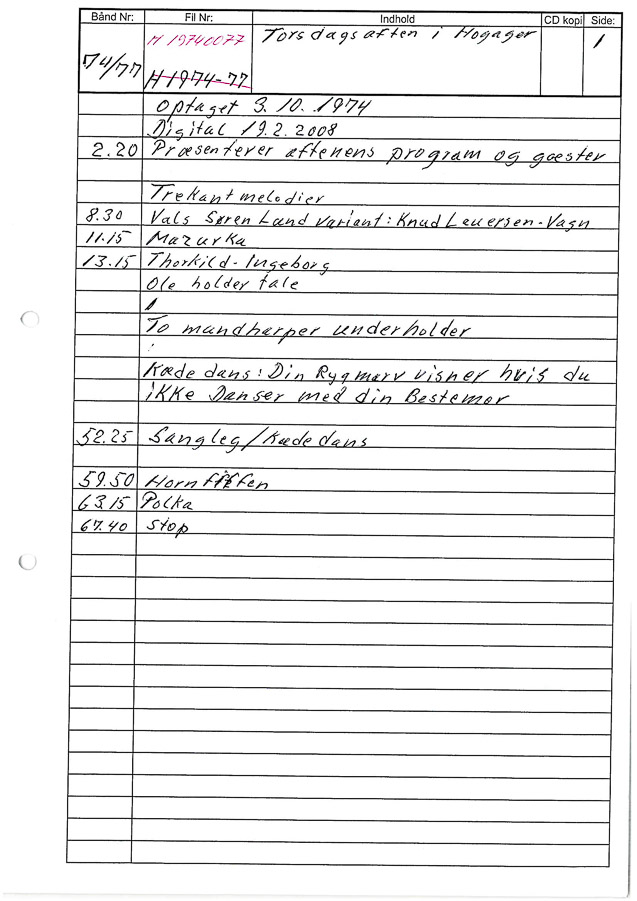 Bånd Nr: Fil Nr: Indhold CD kopi Side:
74/77 H 19740077 Torsdagsaften i Hogager 1
H 1974-77
Optaget 3.10.1974
Digital 19.2.2008
2.20 Præsenterer aftenens program og gæster
Trekantmelodier
8.30 Vals Søren Lund variant: Knud Lauersen-Vagn
11.15 Mazurka
13.15 Thorkild-Ingeborg
Ole holder tale
To mandharper underholder
Kæde dans: Din Rygmarv visner hvis du
ikke Danser med din Bestemor
52.25 Sangleg/Kædedans
59.50 Hornfiffen
63.15 Polka
67.40 Stop